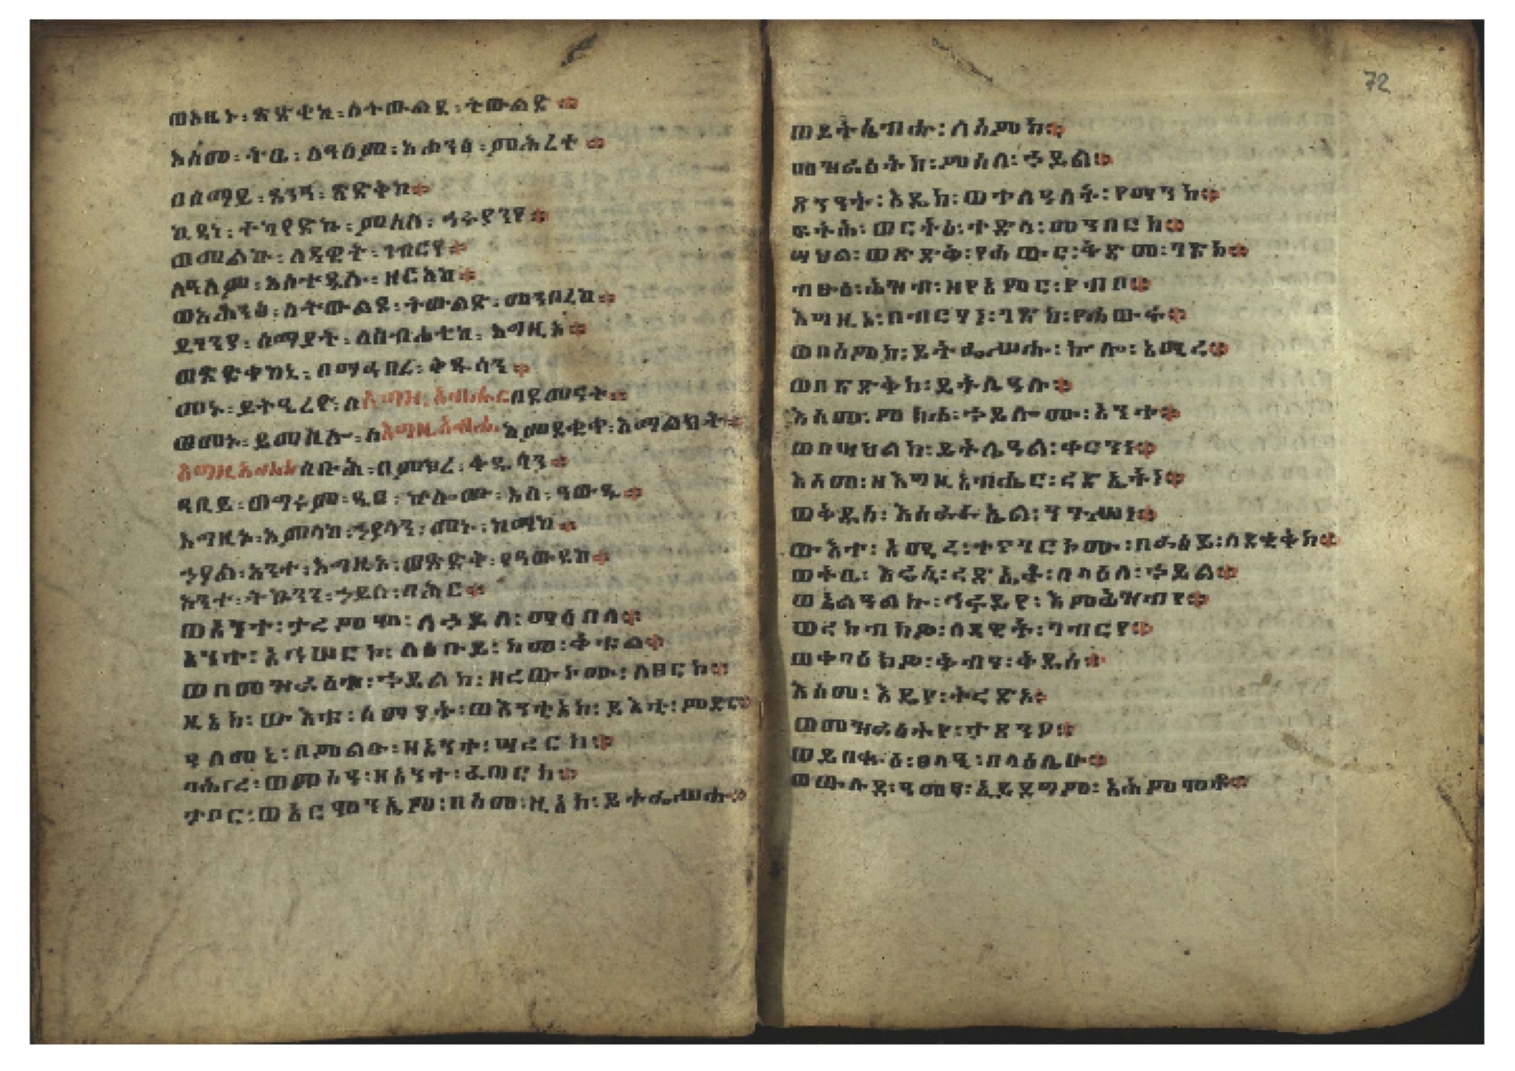 ወእዜኑ ፡ ጽድቀከ ፡ ለትውልደ ፡ ትውልድ ።
እስመ ፡ ትቤ ፡ ለዓለም ፡ አሐንፅ ፡ ምሕረተ ።
በሰማይ ፡ ጸንዓ ፡ ጽድቅከ ።
ኪዳነ ፡ ተካየድኩ ፡ ምስለ ፡ ኅሩያንየ ።
ወመሐልኩ ፡ ለዳዊት ፡ ገብርየ ።
ለዓለም ፡ አስተዴሉ ፡ ዘርአከ ።
ወአሐንፅ ፡ ለትውልደ ፡ ትውልድ ፡ መንበረከ ።
ይገንያ ፡ ሰማያት ፡ ለስብሐቲከ ፡ እግዚኦ ።
ወጽድቀከኒ ፡ በማኅበረ ፡ ቅዱሳን ።
መኑ ፡ ይትዔረዮ ፡ ለእግዚአብሔር በደመናት ።
ወመኑ ፡ ይመስሎ ፡ ለእግዚአብሔር እምደቂቀ ፡ አማልክት ።
እግዚአብሔር ስቡሕ ፡ በምክረ ፡ ቅዱሳን ።
ዓቢይ ፡ ወግሩም ፡ ዲበ ፡ ኵሎሙ ፡ እለ ፡ ዓውዱ ።
እግዚኦ ፡ አምላከ ፡ ኃያላን ፡ መኑ ፡ ከማከ ።
ኃያል ፡ አንተ ፡ እግዚኦ ፡ ወጽድቅ ፡ የዓውደከ ።
አንተ ፡ ትኴንን ፡ ኃይለ ፡ ባሕር ።
ወአንተ ፡ ታረምሞ ፡ ለኃይለ ፡ ማዕበላ ።
አንተ ፡ አኅሠርኮ ፡ ለዕቡይ ፡ ከመ ፡ ቅቱል ።
ወበመዝራዕተ ፡ ኃይልከ ፡ ዘረውኮሙ ፡ ለፀርከ ።
ዚአከ ፡ ውእቱ ፡ ሰማያት ፡ ወእንቲአከ ፡ ይእቲ ፡ ምድር ።
ዓለመኒ ፡ በምልዑ ፡ ዘአንተ ፡ ሣረርከ ።
ባሕረ ፡ ወመስዓ ፡ ዘአንተ ፡ ፈጠርከ ።
ታቦር ፡ ወአርሞንኤም ፡ በስመ ፡ ዚአከ ፡ ይትፌሥሑ ።
72
ወይትሌብሑ ፡ ለስምከ ።
መዝራዕትከ ፡ ምስለ ፡ ኃይል ።
ጸንዓት ፡ እዴከ ፡ ወተለዓለት ፡ የማንከ ።
ፍትሕ ፡ ወርትዕ ፡ ተድላ ፡ መንበርከ ።
ሣህል ፡ ወጽድቅ ፡ የሐውር ፡ ቅድመ ፡ ገጽከ ።
ብፁዕ ፡ ሕዝብ ፡ ዘየአምር ፡ የብቦ ።
እግዚኦ ፡ በብርሃነ ፡ ገጽከ ፡ የሐውሩ ።
ወበስምከ ፡ ይትፌሥሑ ፡ ኵሎ ፡ አሚረ ።
ወበጽድቅከ ፡ ይትሌዓሉ ።
እስመ ፡ ምክሐ ፡ ኃይሎሙ ፡ አንተ ።
ወበሣህልከ ፡ ይትሌዓል ፡ ቀርንነ ።
እስመ ፡ ዘእግዚአብሔር ፡ ረድኤትነ ።
ወቅዱሰ ፡ እስራኤል ፡ ንጉሥነ ።
ውእተ ፡ አሚረ ፡ ተናገርኮሙ ፡ በራዕይ ፡ ለደቂቅከ ።
ወትቤ ፡ እሬሲ ፡ ረድኤተ ፡ በላዕለ ፡ ኃይል ።
ወአልዓልኩ ፡ ኅሩይየ ፡ እምሕዝብየ ።
ወረከብክዎ ፡ ለዳዊት ፡ ገብርየ ።
ወቀባዕክዎ ፡ ቅብዓ ፡ ቅዱሰ ።
እስመ ፡ እዴየ ፡ ትረድኦ ።
ወመዝራዕትየ ፡ ታጸንዖ ።
ወይበቁዕ ፡ ፀላዒ ፡ በላዕሌሁ ።
ወውሉደ ፡ ዓመፃ ፡ ኢይደግም ፡ አሕምሞቶ ።